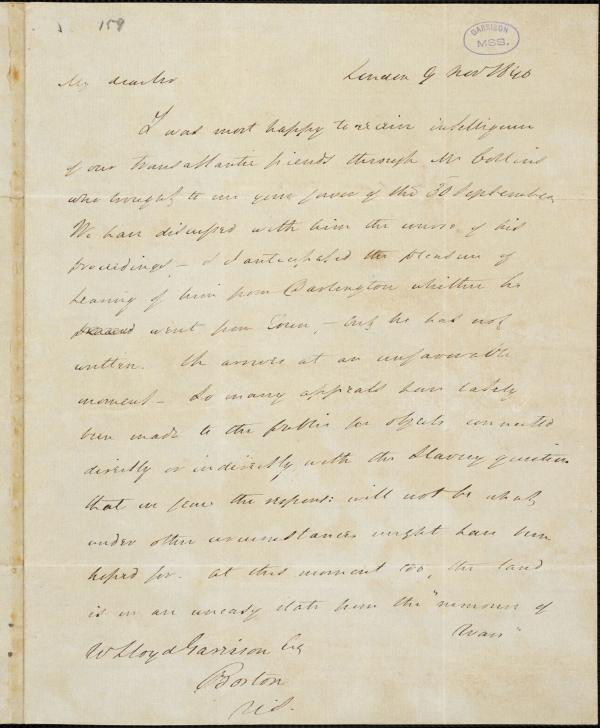 159
GARRISON
MSS.
My dear Sir London 9 Nov 1840
I was most happy to receive intelligence
of our transatlantic friends through Mr Collins
who brought to me your favor of the 30 September
We have discussed with him the course of his
proceedings, – & I anticipated the pleasure of
hearing of him from Darlington whither he
went from Town, – but he has not
written. He arrives at an unfavourable
moment – So many appeals have lately
been made to the public for objects connected
directly or indirectly with the Slavery question
that we fear the response will not be what
under other circumstances might have been
hoped for. At this moment too, the land
is in an uneasy state from the "rumours of
War"
W Lloyd Garrison Esq
Boston
U.S.